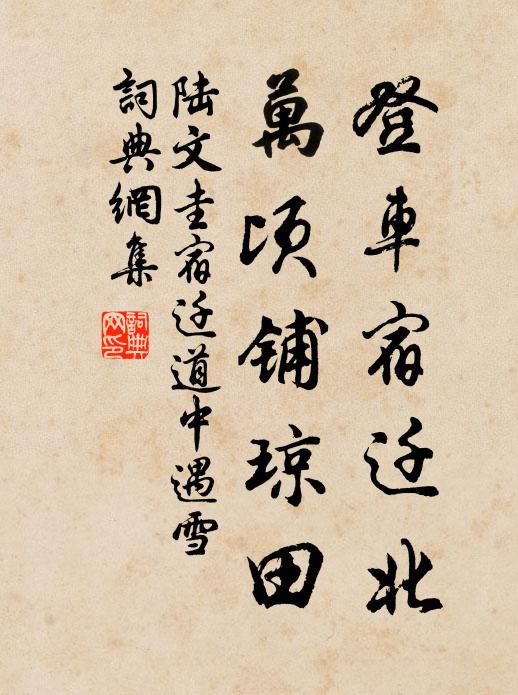 登車宿迁北
萬頃铺琼田
陆文圭宿迁道中遇雪
詞典網集
詞典網印